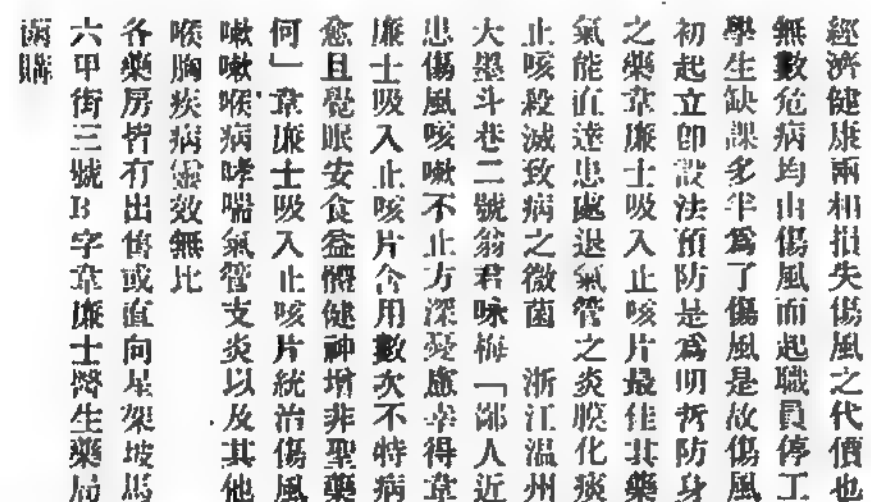 經濟健康兩相損失傷風之代價也
無數危病均由傷風而起職員停工
學生缺課多半爲了傷風是故傷風
初起立卽設法預防是爲明哲防身
之藥韋廉士吸入止咳片最佳其藥
氣能直達患處退氣管之炎膜化痰
止咳殺滅致病之微菌 浙江温州
大墨斗巷二號翁君咏梅「鄙人近
患傷風咳嗽不止方深憂慮幸得韋
廉士吸入止咳片含用數次不特病
愈且覺眠安食益體健神增非聖藥
何」韋廉士吸入止咳片統治傷風
嗽嗽喉病哮喘氣管支炎以及其他
喉胸疾病靈效無比
各藥房皆有出售或直向星架坡馬
六甲街三號B字韋廉士醫生藥局
函購